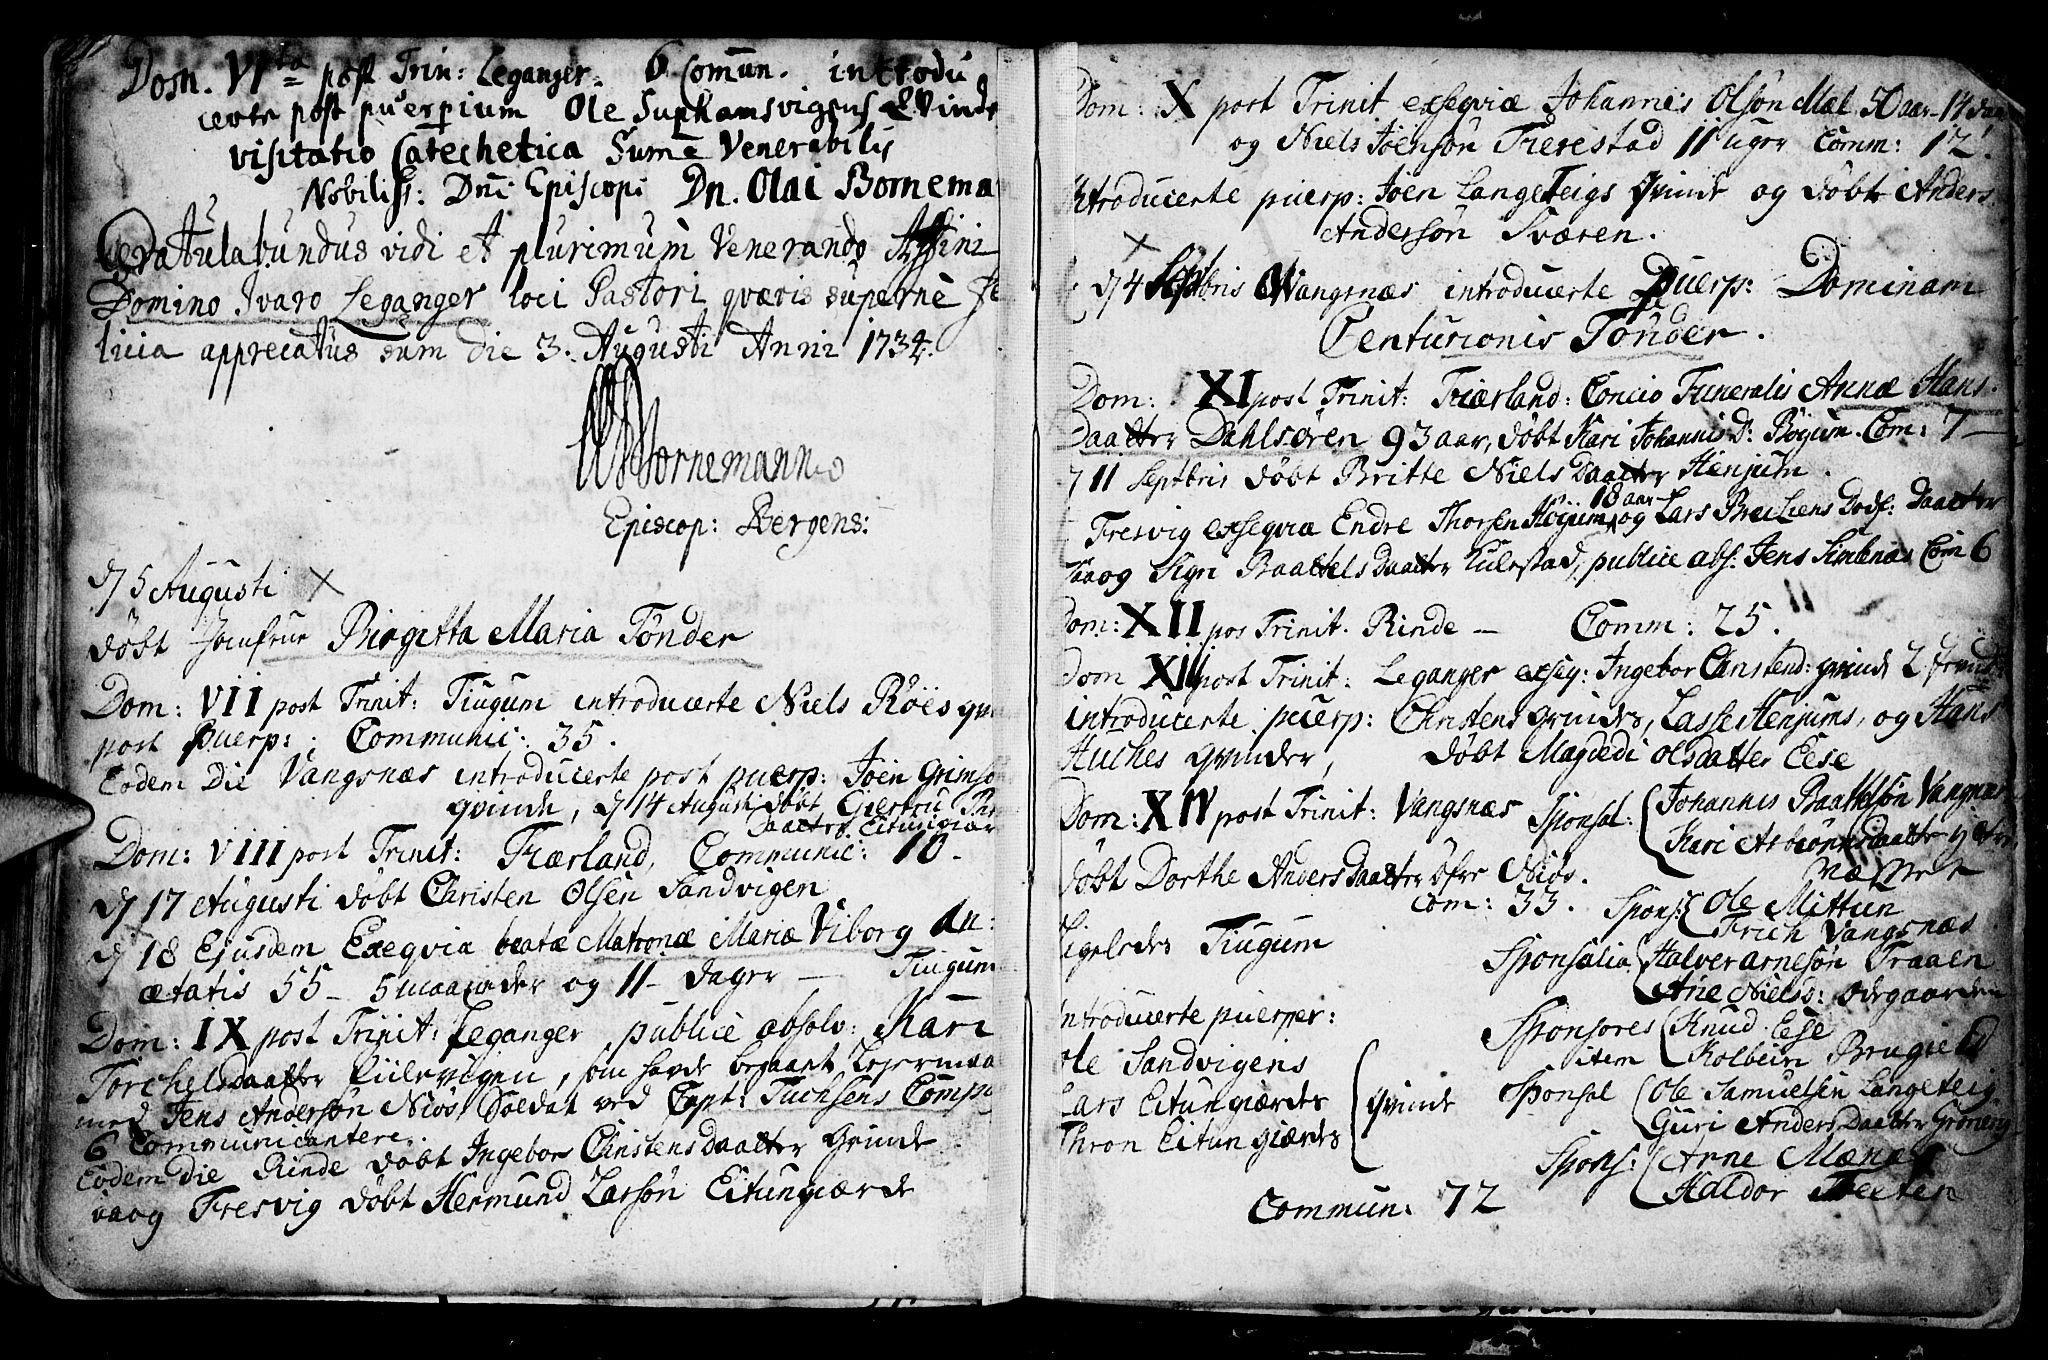 Dom. VIta post Trin: Leganger. 6 Comun. introdu
certe post puerpium Ole Suphamsvigens Qvinde
visitatio Catechetica Sume Venerabilis
Nobiliss: Dni Episcopi Dn. Olai Bornema
Gratulabundus vidi et plurimum Venerando Affini
Domino Ivaro Leganger loci Pastori qvævis superne fe
licia apprecatus sum die 3. Augusti Anni 1734.
Bornemann
Episcop: Bergens:
d 5 Augusti X
døbt Jomfrue Birgitta Maria Tønder
Dom: VII post Trinit: Tiugum introducerte Niels Röes qvi
post puerp: ; Communic: 35.
Eodem Die Vangsnæs introducerte post puerp: Joen Grimsø
qvinde, d 14 August døbt Giertru
Daatter Eitungiær
Dom: VIII post Trinit: Fiærland, Communic: 10.
d 17 Augusti døbt Christen Olsen Sandvigen
d 18 Ejusdem Exeqvia beatæ Matronæ Mariæ Viborg An:
ætatis 55 - 5 maaneder og 11 - dager - Tiugum
Dom: IX post Trinit: Leganger publice absolv: Kari
Torchelsdaatter Eiilevigen, som havde begaaet Lejermaa
med Jens Andersøn Niøs Soldat ved Capt: Tuchsens Compa
6 Communicantere.
Eodem Die Rinde døbt Ingebor Christensdaatter Grinde
vaag Fresvig døbt Hermund Larsøn Eitungiærde
Dom: X post Trinit exseqviæ Johannis Olsøn Mæl 50 aar 14
og Niels Joensøn Fierestad 11 uger Comm: 12.
introducerte puerp: Joen Langeteigs qvinde og døbt Anders
Andersøn Sværen.
X
d 4 Septbris Wangsnæs introducerte Puerp: Dominam
Centurionis Tønder.
Dom: XI post Trinit: Fiærland: Concio Funeralis Annæ Hans
Daatter Dahlsøren 93 aar, døbt Kari Johannis D: Böijum. Com: 7 -
d 11 Septbris døbt Britte Niels Daatter Henjum.
Fresvig exseqvia Endre Thorsen Höijum 18 aar og Lars Breiliens Dødf: daatter
vaog Sigri Baattelsdaatter Kulestad, publice abs: Jens Simenæs Com 6
Dom: XII pos Trinit. Rinde - Comm: 25.
Dom XIII post Trinit: Leganger exseq: Ingebor Christend: qvinde 2
introducerte puerp: Christens Grindes, Lasse Henjums, og Hans
Huches qvinder, døbt Magdedi Olsdaatter Eese
Dom: XIV post Trinit: Vangsnæs Sponsal: Johannis Baattelsøn Vangnæs
Kari Asbiørnsdaatter
døbt Dorthe Anders Daatter öfre Niøs.
com: 33. Spons: Ole Mittun
Erich Vangsnæs
ligeledes Tiugum
Sponsalia: Halver Arnesøn Fraaen
Ane Nielsd: Ødegaarden
introducerte puerper: Sponsores Knud Eese
ole Sandvigens item Kolbein Brugielid
Lars Eitungiærde qvinde Sponsal Ole Samuelsen Langeteig
Thron Eitungiærdes Guri Anders Daatter
Spons: Arne Mænæs
Haldor Tveiten
Commun: 72